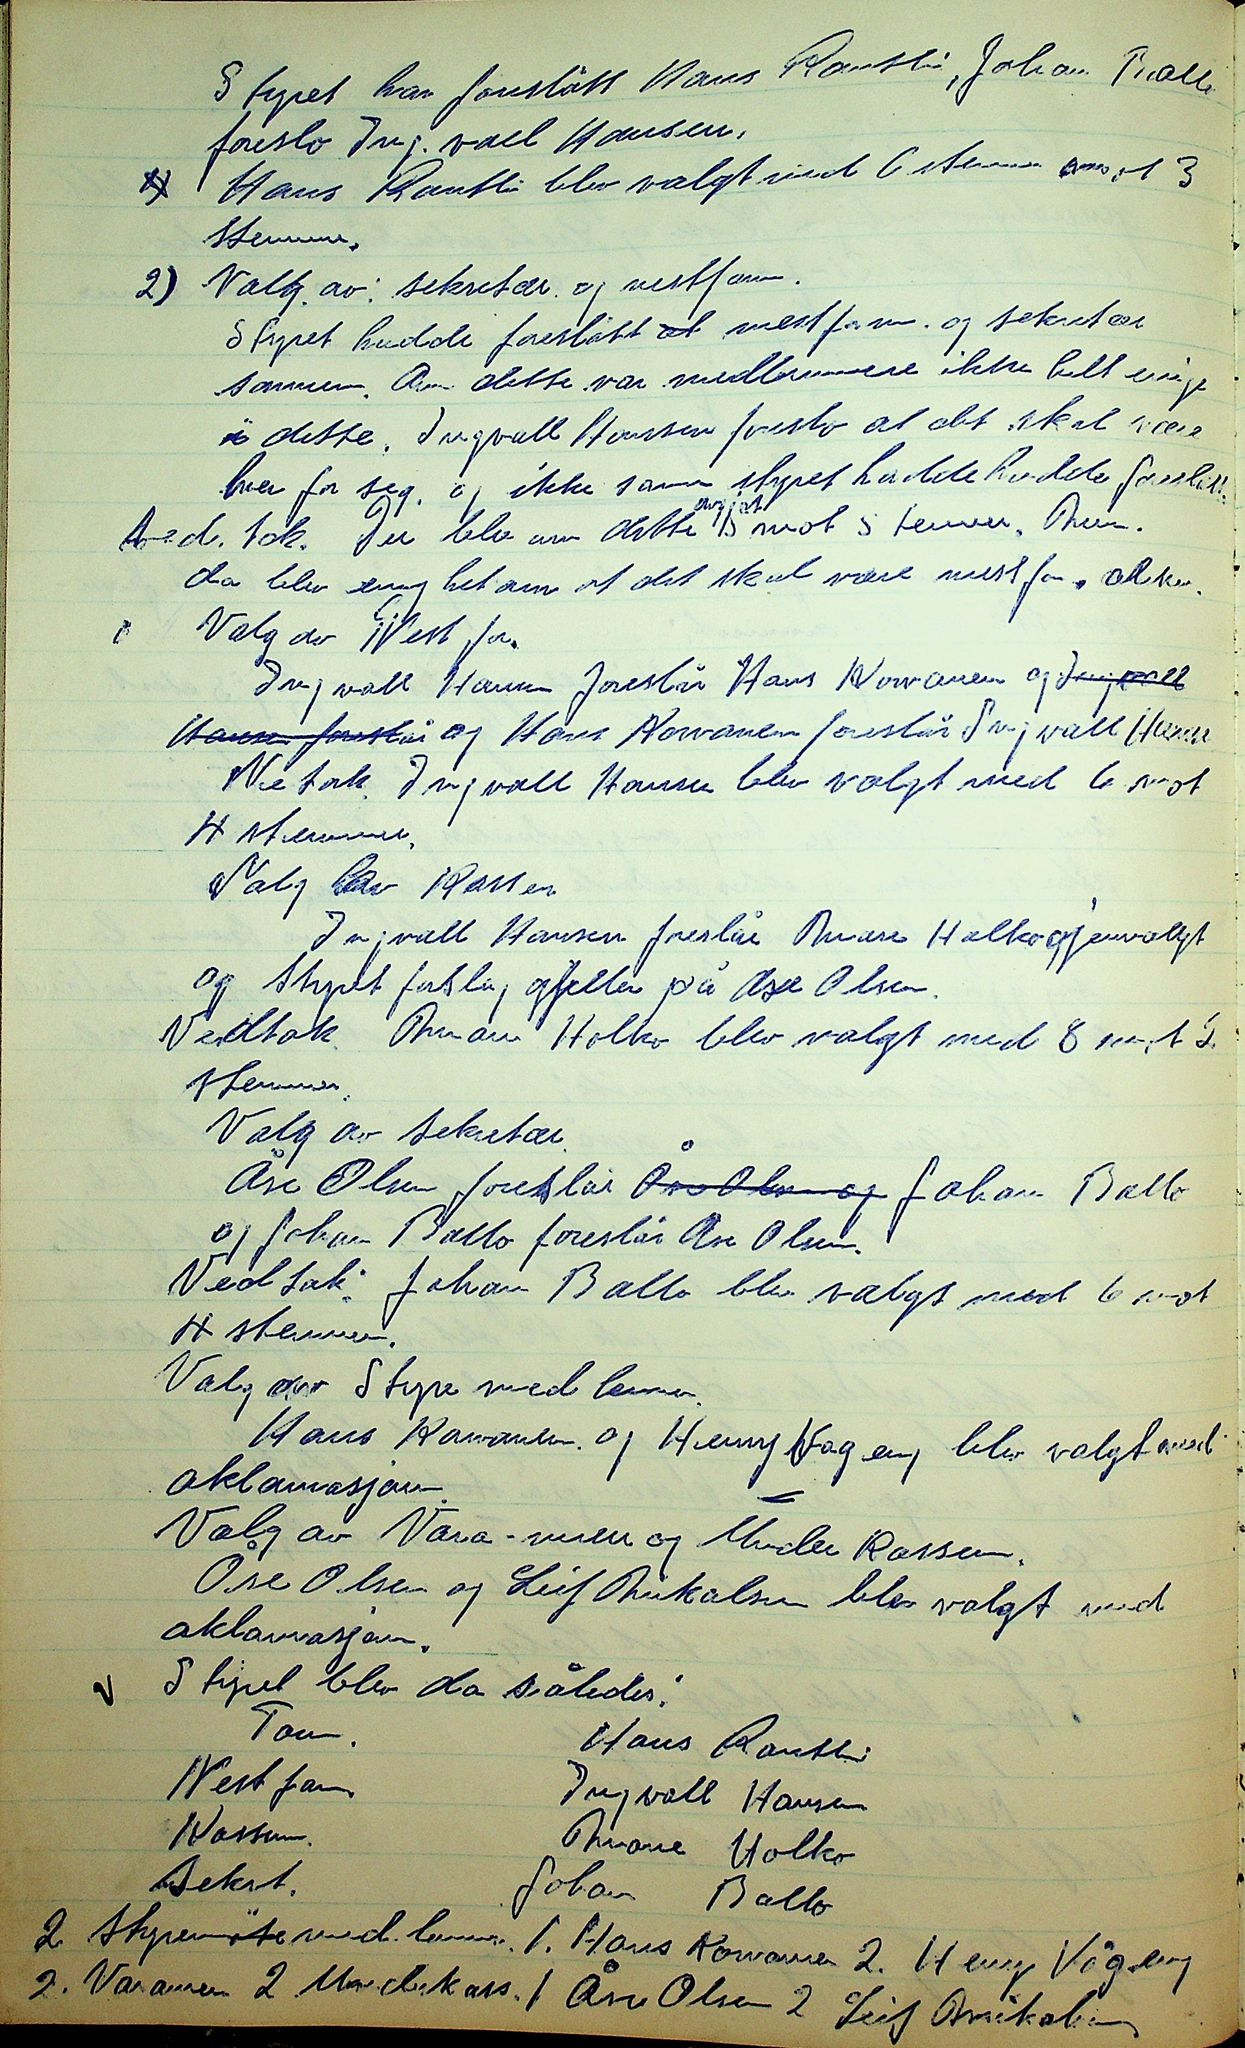 Styret har foreslått Hans Rantti, Johan Ballo
foreslo Ingvall Hansen.
Hans Rantti blev valgt med 6 stemmer mot 3
stemmer.
2) Valg. av: sekretær. og nestform.
Styret hadde foreslått at nestform. og sekretær
sammen. Om dette var medlemmene ikke helt enige
i dette. Ingvall Hansen foreslo at det skal være
hver for seg. og ikke som styret hadde hadde foreslått.
Ved. tok. Det blev om dette avgjøt 5 mot 5 temmer. Men.
da blev enighet om at det skal være nestfor.
Valg av Nestfor.
Ingvall Hansen foreslår Hans Kowanen og Ingvall
Hansen foreslår og Hans Kowanen foreslår Ingvall Hansen
Ve tak. Ingvall Hansen blev valgt med 6 mot
4 stemmer.
Valg av Kasser
Ingvall Hansen foreslår Halko gjenvallgt
og Styret forslag gjeller på Åse Olsen.
Vedtak Halko blev valgt med 8 mot 2
stemmer.
Valg av sekretær.
Åse Olsen foreslår Åse Olsen og Johan Ballo
og Johan Ballo foreslår Åse Olsen.
Vedtak: Johan Ballo blev valgt med 6 mot
4 stemmer.
Valg av Styre medlemmer.
Hans Kowanen. og Henny Vågeng blev valgt med
aklamasjon.
Valg av Vara-menn og Under Kasserer.
Åse Olsen og Leif Mikalsen blev valgt med
aklamasjon.
Styret blev da således:
Form. Hans Rantti
Nestform Ingvall Hansen
Kasserer. Halko
Sekret. Johan Ballo
2 Styremøte medlemmer. 1. Hans Kowanen 2. Henny Vågeng
2. Varamen 2 Underkass. 1 Åse Olsen 2 Leif Mikalsen